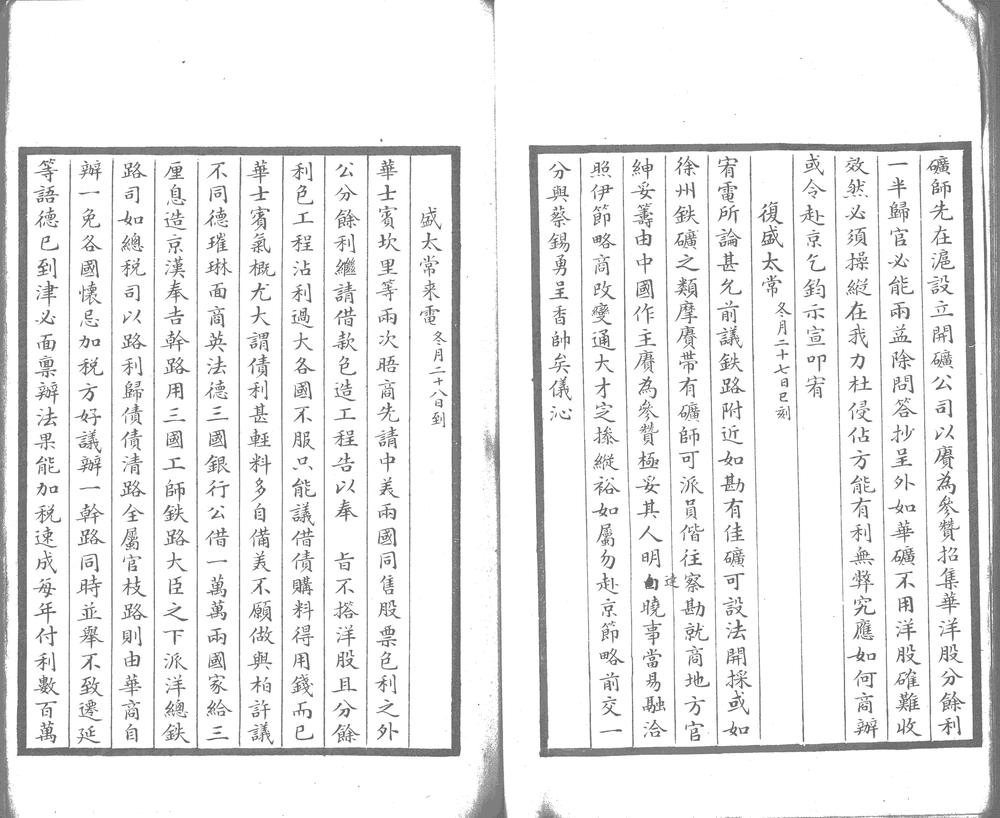 礦師先在滬設立開礦公司以賡為參贊招集華洋股分餘利
一半歸官必能兩益除問答抄呈外如華礦不用洋股確難收
效然必須操縱在我力杜侵佔方能有利無弊究應如何商辦
或令赴京乞鈞示宣叩宥
復盛太常 冬月二十七日巳刻
宥電所論甚允前議鉄路附近如勘有佳礦可設法開採或如
徐州鉄礦之類摩賡帶有礦師可派員偕往察勘就商地方官
紳妥籌由中國作主賡為參贊極妥其人明達曉事當易融洽
照伊節略商改變通大才定操縱裕如屬勿赴京節略前交一
分與蔡錫勇呈香帥矣儀沁
盛太常来電 冬月二十八日到
華士賓坎里等兩次晤商先請中美兩國同售股票包利之外
公分餘利繼請借款包造工程告以奉 旨不搭洋股且分餘
利包工程沾利過大各國不服只能議借債購料得用錢而已
華士賓氣概尤大謂債利甚輕料多自備美不願做與柏許議
不同德璀琳面商英法德三國銀行公借一萬萬兩國家給三
厘息造京漢奉吉幹路用三國工師鉄路大臣之下派洋總鉄
路司如總税司以路利歸債債清路全屬官枝路則由華商自
辦一免各國懷忌加税方好議辦一幹路同時並舉不致遷延
等語德已到津必面稟辦法果能加税速成每年付利數百萬